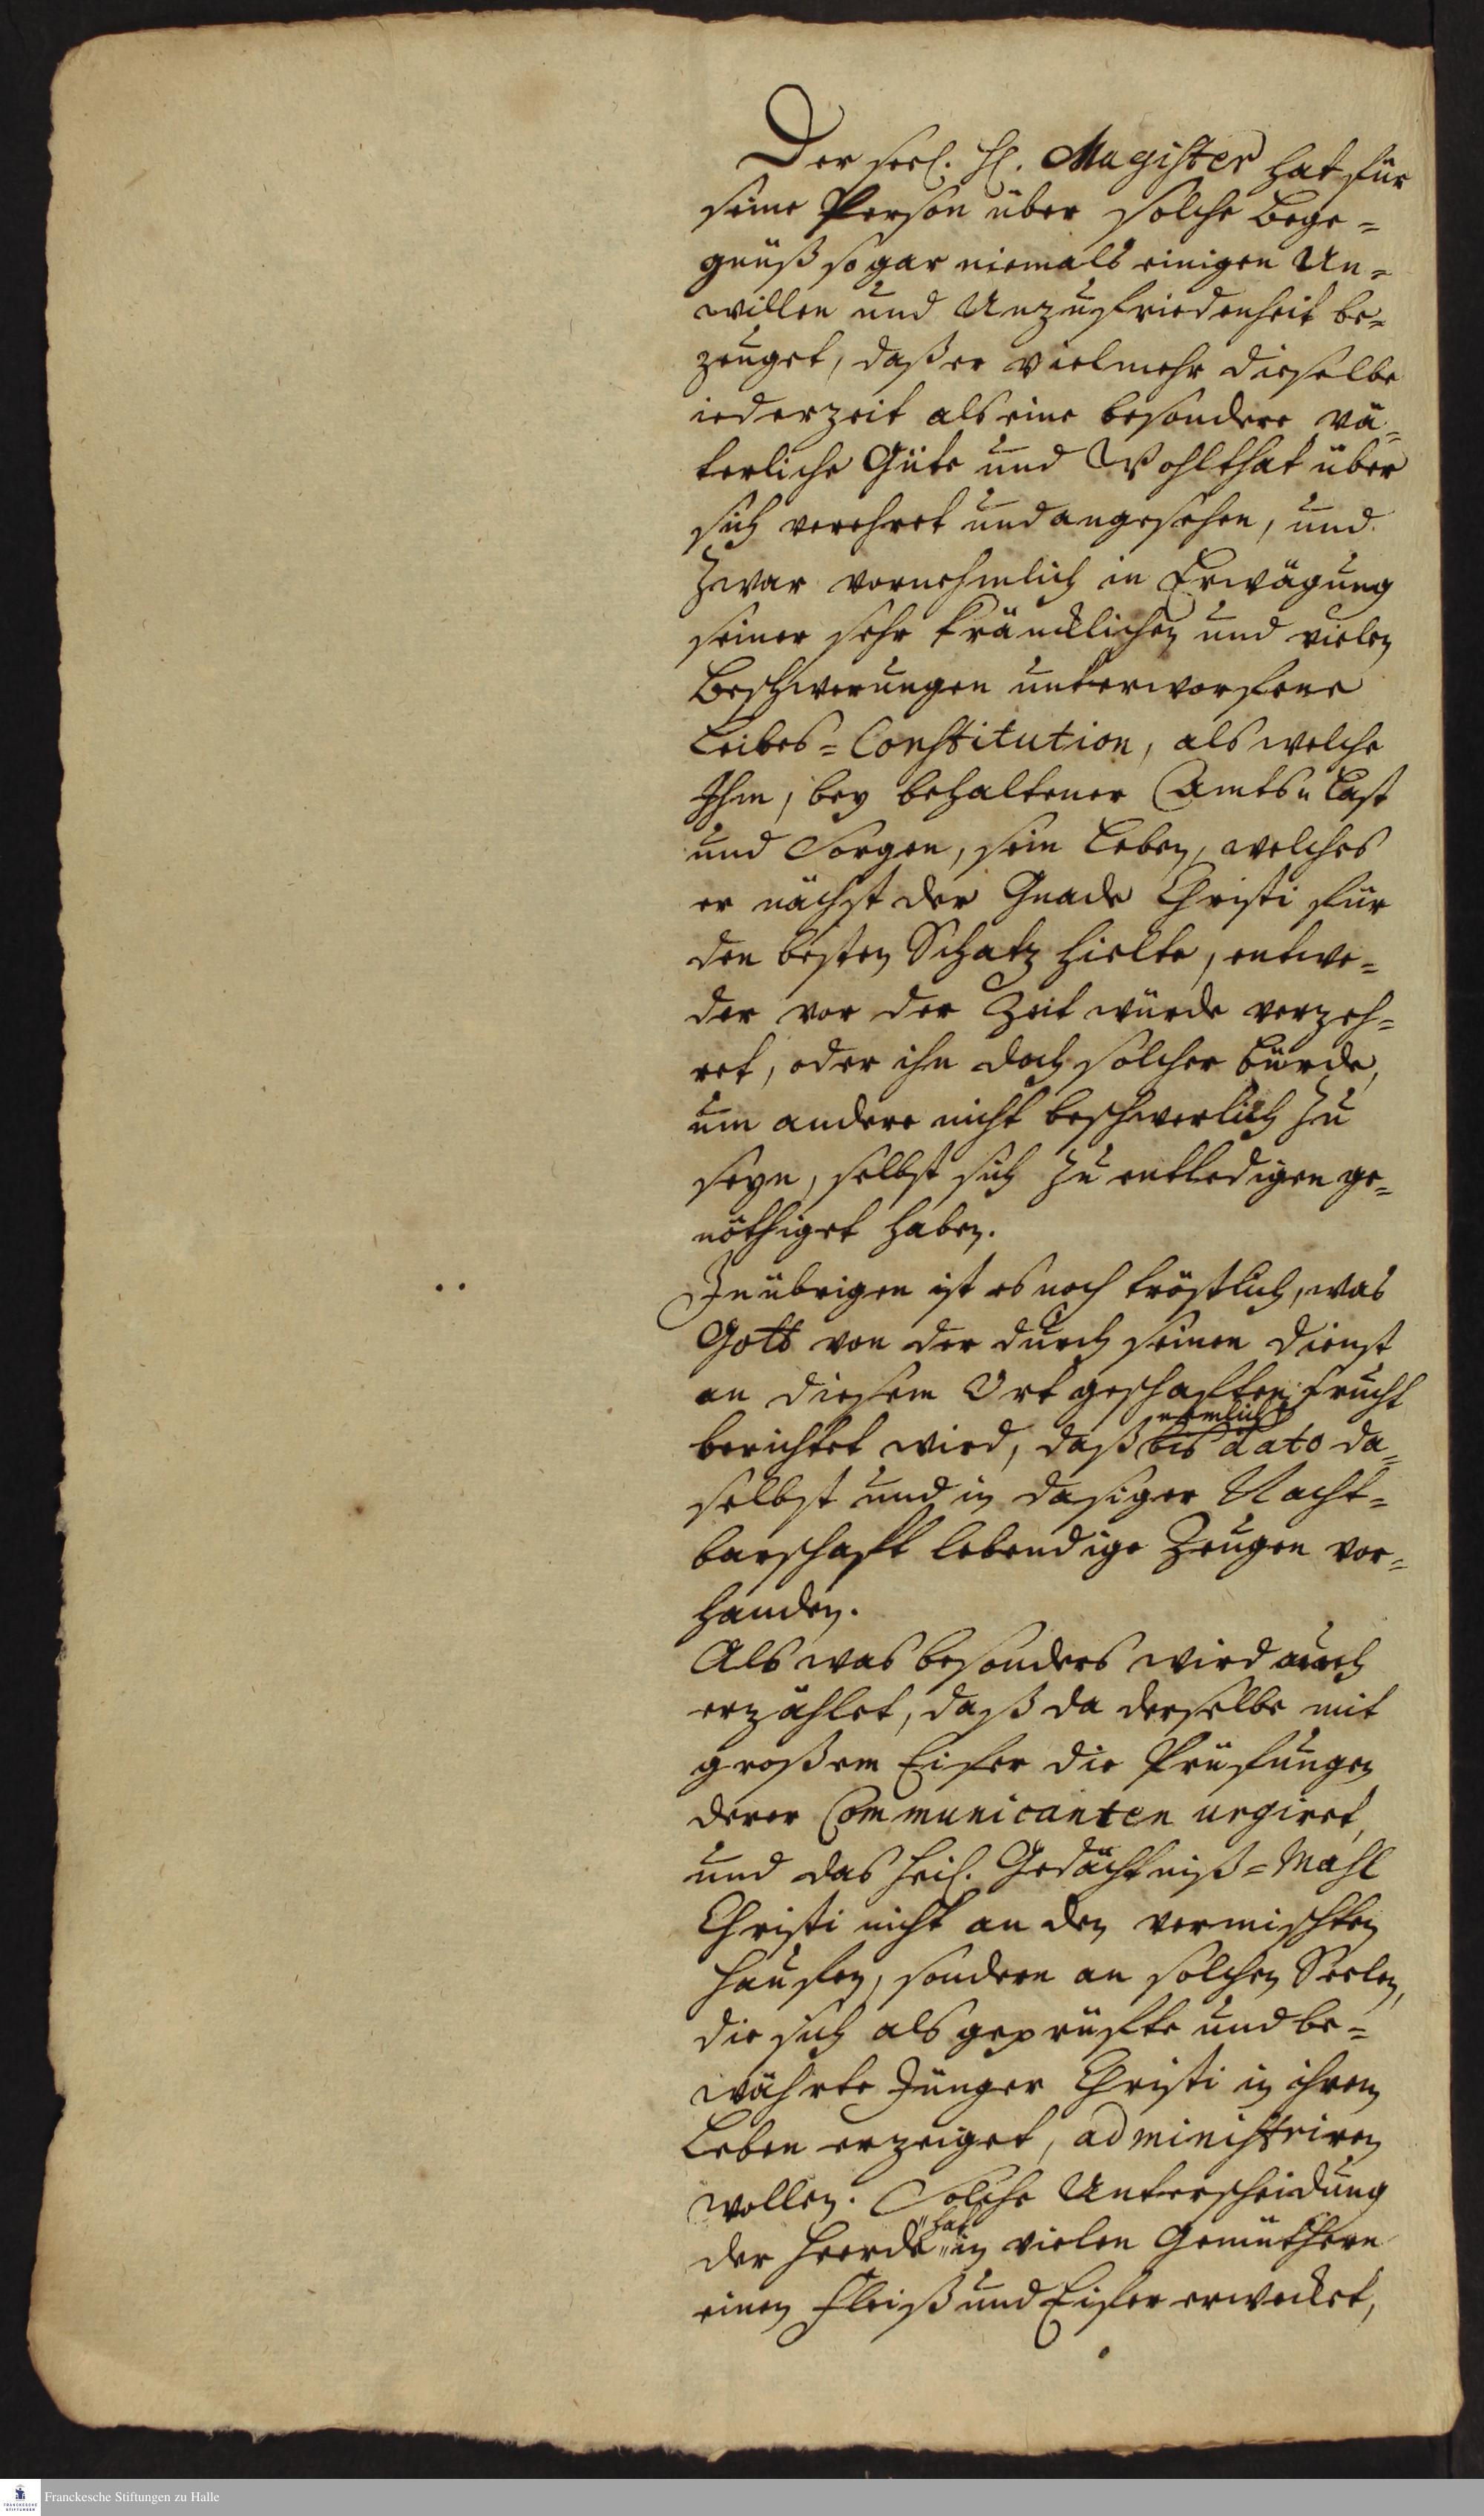 Der seel. H. Magister hat für
seine Person über solche Bege-
gnüß so gar niemals einigen Un-
willen und Unzufriedenheit be-
zeuget, daß er vielmehr dieselbe
iederzeit als eine besondere vä-
terliche Güte und Wohlthat über
sich verehret und angesehen, und
zwar vornehmlich in Erwägung
seiner sehr kräncklichen und vielen
Beschwerungen unterworfene
Leibes-Constitution, als welche
Ihm, bey behaltener Amts-Last
und Sorgen, sein Leben, welches
er nächst der Gnade Christi für
den besten Schatz hielte, entwe-
der vor der Zeit würde verzeh-
ret, oder ihn doch solcher Bürde,
um andere nicht beschwerlich zu
seyn, selbst sich zu entledigen ge-
nöthiget haben.
In übrigen ist es noch tröstlich, was
Gott von der durch seinen Dienst
an diesem Ort geschafften Frucht
nemlich
berichtet wird, daß bis dato da-
selbst und in dasiger Nacht-
barschafft lebendige Zeugen vor-
handen.
Als was besonders wird auch
erzählet, daß da derselbe mit
großem Eifer die Prüfungen
derer Communicanten urgiret,
und das heil. Gedächtniß-Mahl
Christi nicht an den vermischten
Haufen, sondern an solchen Seelen,
die sich als geprüfte und be-
währte Jünger Christi in ihrem
Leben erzeiget, administriren
wollen. Solche Unterscheidung
hat
der Heerde in vielen Gemüthern
einen Fleiß und Eifer erwecket,
Franckesche Stiftungen zu Halle